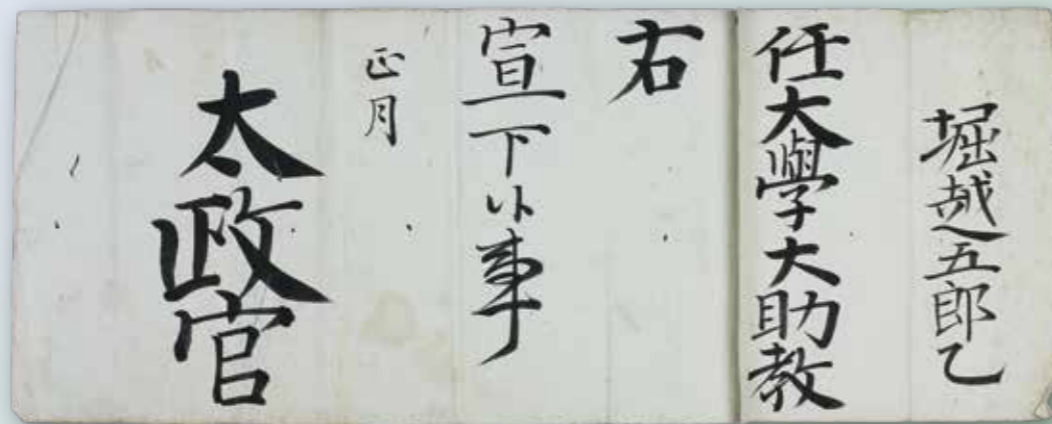 堀越五郎乙
任大學大助教
右
宣下候事
正月
太政官